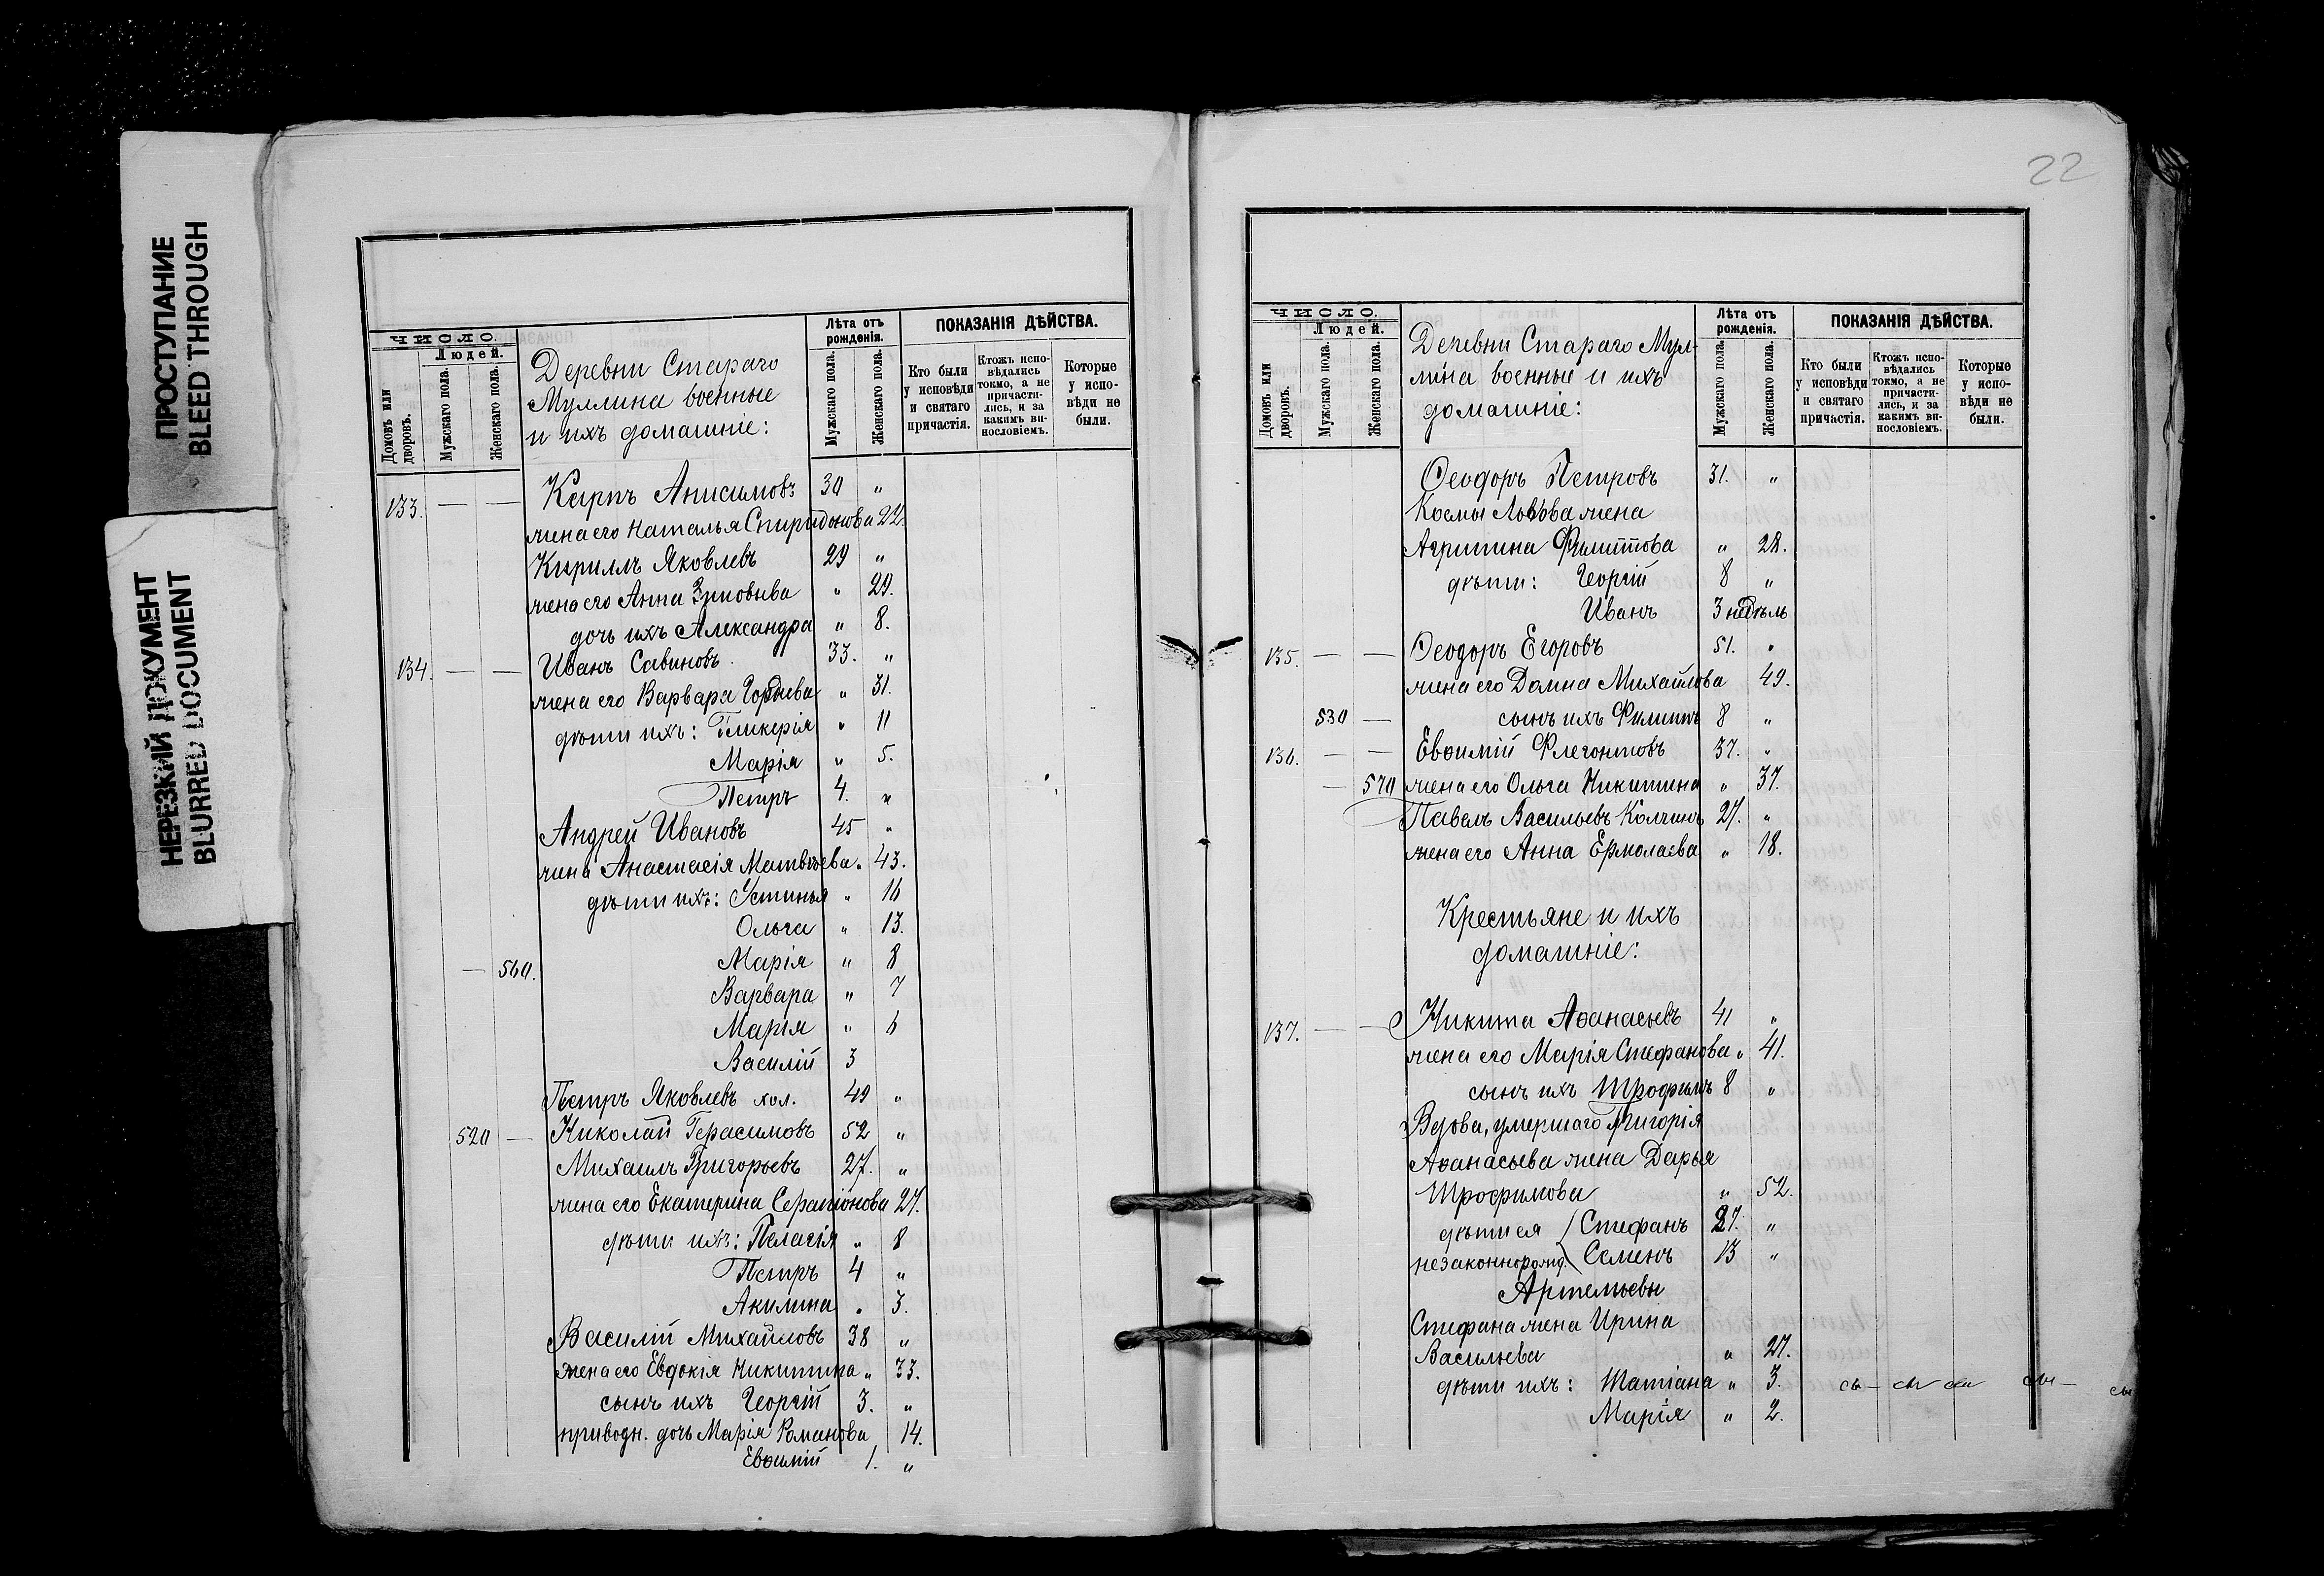 ПРОСТУПАНИЕ
BLEED THROUGH
НЕРЕЗКИЙ ДОКУМЕНТ
BLURRED DOCUMENT
ЧИСЛО.
Людей.
Домовъ или дворовъ.
Мужскаго пола.
Женскаго пола.
Деревни Стараго
Муллина военные
и ихъ домашніе:
Лѣта отъ рожденія.
Мужскаго пола.
Женскаго пола.
ПОКАЗАНІЯ ДѢЙСТВА.
Кто были у исповѣди и святаго причастія.
Ктожъ исповѣдались токмо, а не причастились, и за какимъ винословіемъ.
Которые у исповѣди не были.
133. — — Карпъ Анисимовъ 30 „
жена его Наталья Спиридонова 22.
Кириллъ Яковлевъ 29 „
жена его Анна Зиновьева „ 29.
дочь ихъ Александра „ 8.
134. — — Иванъ Савиновъ 33. „
жена его Варвара „ 31.
дѣти ихъ: Гликерія „ 11
Марія „ 5.
Петръ 4. „
Андрей Ивановъ 45 „
жена Анастасія Матвѣева „ 43.
дѣти ихъ: Устинья „ 16
Ольга „ 13.
— 560. Марія „ 8
Варвара „ 7
Марія „ 6
Василій 3
Петръ Яковлевъ хол. 49 „
520 — Николай Герасимовъ 52 „
Михаилъ Григорьевъ 27. „
жена его Екатерина Серапіонова 27.
дѣти ихъ: Пелагія „ 8
Петръ 4 „
Акилина „ 3.
Василій Михайловъ 38 „
жена его Евдокія Никитина „ 33.
сынъ ихъ Георгій 3. „
приводн. дочь Марія Романова 14.
Евѳимій 1. „
22
ЧИСЛО.
Людей.
Домовъ или дворовъ.
Мужскаго пола.
Женскаго пола.
Деревни Стараго Мул-
лина военные и ихъ
домашніе:
Лѣта отъ рожденія.
Мужскаго пола.
Женскаго пола.
ПОКАЗАНІЯ ДѢЙСТВА.
Кто были у исповѣди и святаго причастія.
Ктожъ исповѣдались токмо, а не причастились, и за какимъ винословіемъ.
Которые у исповѣди не были.
Ѳеодоръ Петровъ 31. „
Космы Львова жена
Агрипина Филиппова „ 28.
дѣти: Георгій 8 „
Иванъ 3 недѣль
135. — — Ѳеодоръ Егоровъ 51. „
жена его Домна Михайлова 49.
530 — сынъ ихъ Филиппъ 8 „
136. — — Евѳимій Флегонтовъ 37. „
— 570 жена его Ольга Никитина „ 37.
Павелъ Васильевъ Колчинъ 27. „
жена его Анна Ермолаева „ 18.
Крестьяне и ихъ
домашніе:
137. — — Никита Аѳанасьевъ 41 „
жена его Марія Стефанова „ 41.
сынъ ихъ Трофимъ 8 „
Вдова, умершаго Григорія
Аѳанасьева жена Дарья
Трофимова „ 52.
дѣти ея Стефанъ 27. „
незаконнорожд. Семенъ 13 „
Артемьевы
Стефана жена Ирина
Васильева „ 27.
дѣти ихъ: Татіана „ 3.
Марія „ 2.